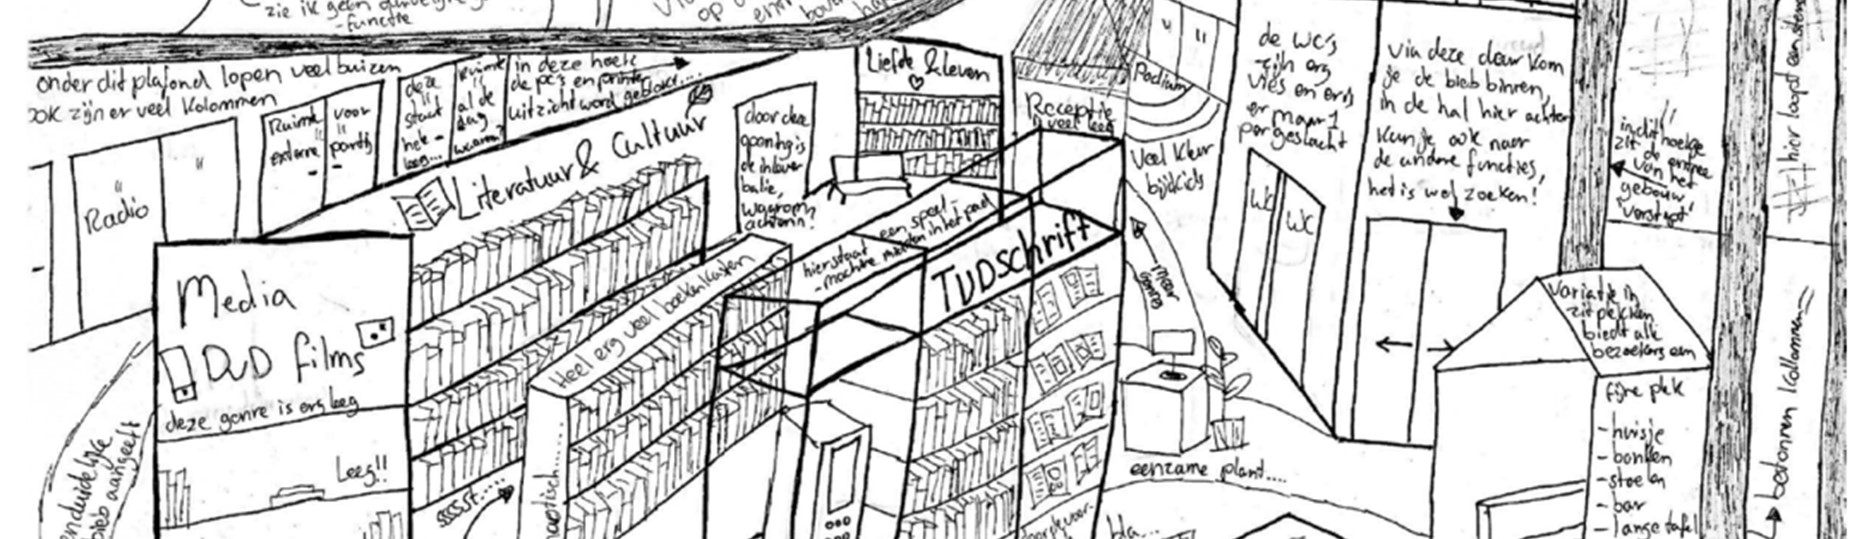 zie ik geen
-functie
op
onder dit plafond lopen veel buizen
ook zijn er veel kolommen
Radio
"
Ruimte
"
externe
-
voor
"
partij
-
deze
"
staat
hele-
leeg...
ruimte
"
al de
dag
waarom?
in deze hoek
de pc's en printer
uitzicht word geblokt....
Literatuur & Cultuur
door deze
opening is
de inlever
balie,
waarom
achterin?
Liefde & leven
Receptie
veel leeg
Podium
"
veel kleur
bij dkids
de wc's
zijn erg
vies en er is
er maar 1
per geslacht
WC
WC
via deze deur kom
je de bieb binnen,
in de hal hier achter
kun je ook naar
de andere functies,
het is wel zoeken!
in dit hoekje
zit de entree
van het
gebouw
'verstopt'
hier loopt een
Media
DVD films
deze genre is erg leeg
Leeg!!
sssst.....
Heel erg veel boekenkasten
hier staat een speel
-machine midden in het pad
TIJDschrift
meer
genres
eenzame plant....
bla...
variatie in
zitplekken
biedt alle
bezoekers een
fijne plek
- huisje
- banken
- stoelen
- bar
- lange tafel
betonnen kolommen